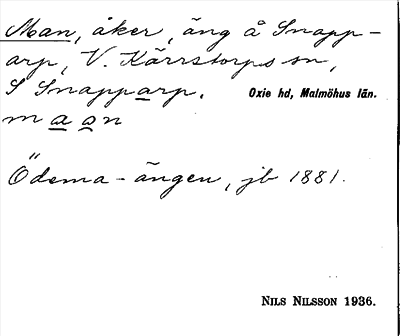 Man, åker, äng å Snapp-
arp, V. Kärrstorps sn,
S Snapparp. Oxie hd, Malmöhus län.
m a a n
Ödema-ängen, jb 1881.
NILS NILSSON 1936.